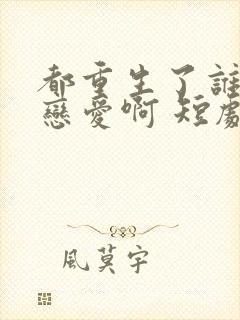 都重生了誰
戀愛啊 短劇
風莫宇